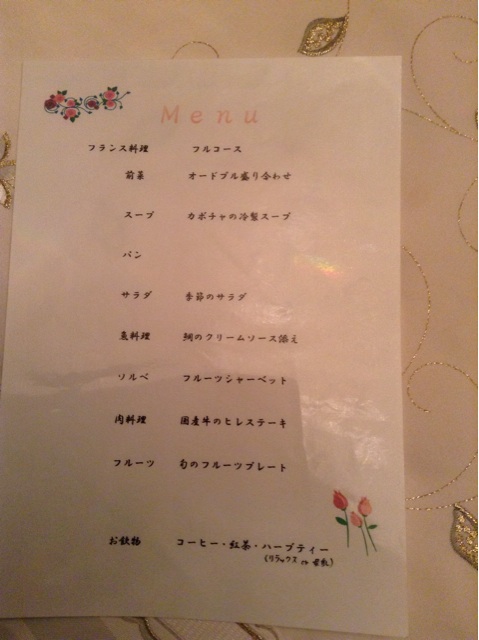 Menu
フランス料理 フルコース
前菜 オードブル盛り合わせ
スープ カボチャの冷製スープ
パン
サラダ 季節のサラダ
魚料理 鯛のクリームソース添え
ソルベ フルーツシャーベット
肉料理 国産牛のヒレステーキ
フルーツ 旬のフルーツプレート
お飲物 コーヒー・紅茶・ハーブティー
(リラックス or